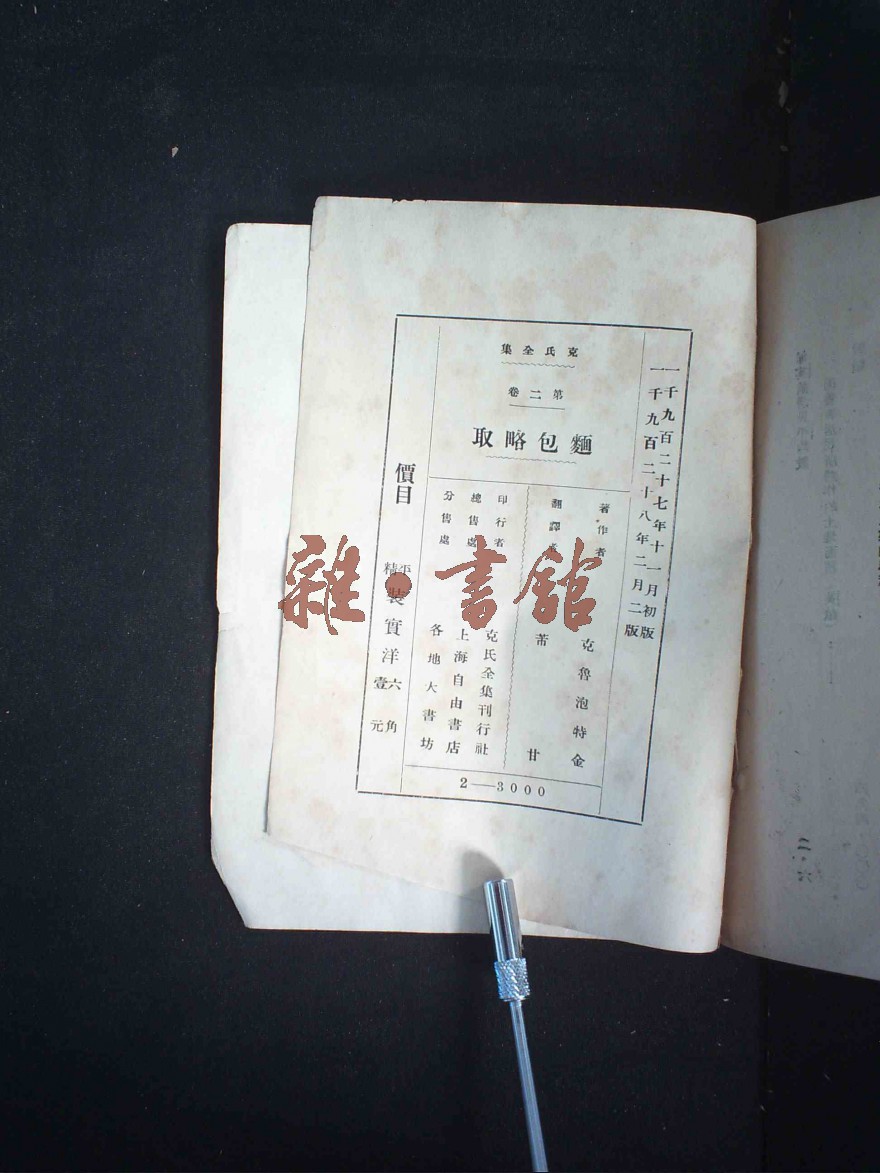 一千九百二十七年十一月初版
一千九百二十八年二月二版
克氏全集
第二卷
麵包略取
著作者 克魯泡特金
翻譯者 芾甘
印行者 克氏全集刊行社
總售處 上海自由書店
分售處 各地大書坊
價目
平裝實洋六角
精裝實洋壹元
2—3000
雜·書館